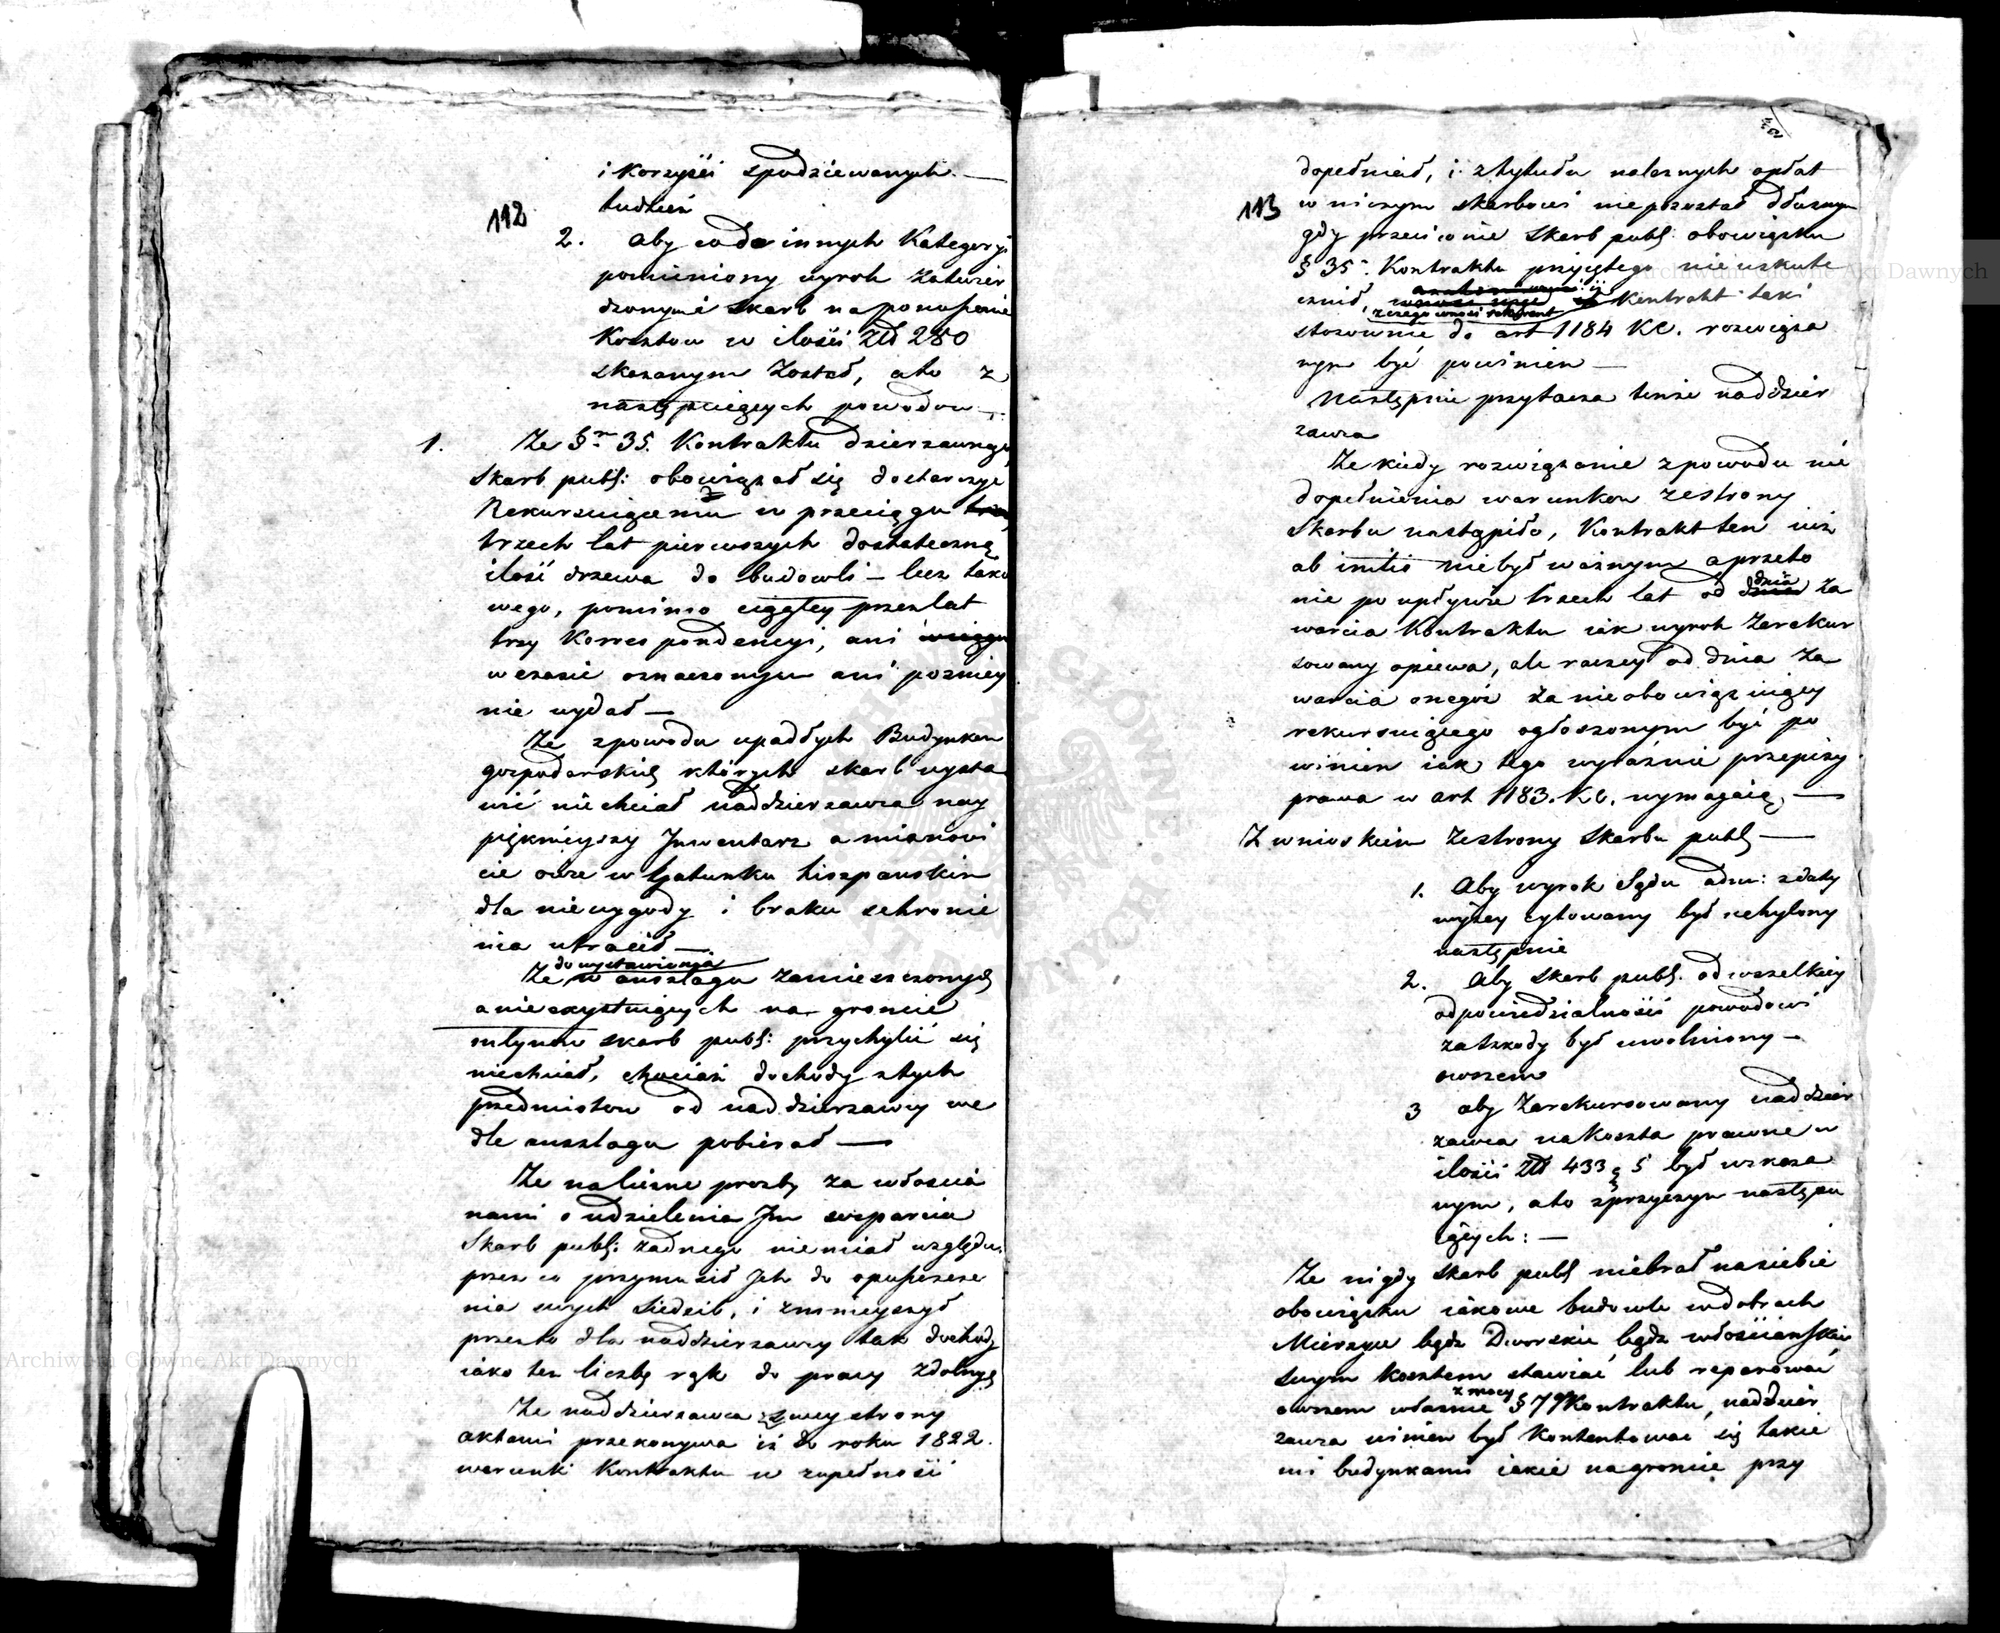 112
i korzyści spodziewanych. —
tudzież
2. Aby co do innych Kategoryi
pomieniony wyrok zatwier
dzonym a skarb na ponoszenie
Kosztow w ilości Złł 280
skazanym został, a to z
następuiących powodow —
1. Ze §r 35. Kontraktu dzierzawnego
Skarb publ: obowiązał się dostarczyć
Rekursuiącemu w przeciągu
trzech lat pierwszych dostateczną
ilość drzewa do budowli — lecz tako
wego, pomimo ciągłey przez lat
trzy Korrespondencyi, ani
w czasie oznaczonym ani pozniey
nie wydał —
Ze z powodu upadłych Budynkow
gospodarskich których skarb wysta
wić nie chciał naddzierzawca nay
pięknieyszy Inwentarz a mianowi
cie owce w Gatunku hiszpanskim
dla niewygody i braku schronie
nia utracił —
do wystawienia
Ze w anszlagu zamieszczonych
a nieexystuiących na groncie
młynow skarb publ: przychylić się
niechciał, chociaż dochody z tych
przedmiotow od naddzierzawcy we
dle anszlagu pobierał —
Ze na liczne prozby za włościa
nami o udzielenia Im wsparcia
Skarb publ: żadnego nie miał względu,
przez co przymusił Ich do opuszcze
nia swych siedzib, i zmnieyszył
przeto dla naddzierzawcy tak dochody
iako tez liczbę rąk do pracy zdolnych
Ze naddzierzawca z swey strony
aktami przekonywa iż do roku 1822.
warunki Kontraktu w zupełności
113
dopełniał, i z tytułu naleznych opłat
w niczym skarbowi niepozostał dłużnym
gdy przeciwnie Skarb publ: obowiązku
§ 35. Kontraktu przyiętego nieuskute
cznił, Kontrakt taki
z czego wnosi rekurent
stosownie do art 1184 KC. rozwiąza
nym być powinien —
Następnie przytacza tenże naddzier
zawca
Ze kiedy rozwiązanie z powodu nie
dopełnienia warunkow ze strony
Skarbu nastąpiło, Kontrakt ten iuż
ab initio nie był ważnym a przeto
nie po upływie trzech lat od dnia za
warcia Kontraktu iak wyrok zarekur
sowany opiewa, ale raczey od dnia za
warcia onegóż za nieobowiązuiący
rekursuiącego ogłoszonym być po
winien iak tego wyraźnie przepisy
prawa w art 1183. KC. wymagaią. —
Z wnioskiem ze strony Skarbu publ —
1. Aby wyrok Sądu adm: z daty
wyżey cytowany był uchylony
następnie
2. Aby Skarb publ. od wszelkiey
odpowiedzialności powodowi
za szkody był uwolniony —
owszem
3 aby zarekursowany naddzier
zawca na koszta prawne w
ilości Złł 433 g 5 był wskaza
nym, a to z przyczyn następu
iących: —
Ze nigdy skarb publ niebrał na siebie
obowiązku iakowe budowle w dobrach
Mierzyn bądz Dworskie bądz włościańskie
swym kosztem stawiać lub reperować
z mocy
owszem własnie § 79 Kontraktu, naddzier
zawca winien był Kontentować się takie
mi budynkami iakie na groncie przy